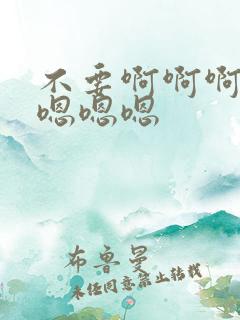 不要啊啊啊
嗯嗯嗯
布鲁曼
未经同意禁止转载